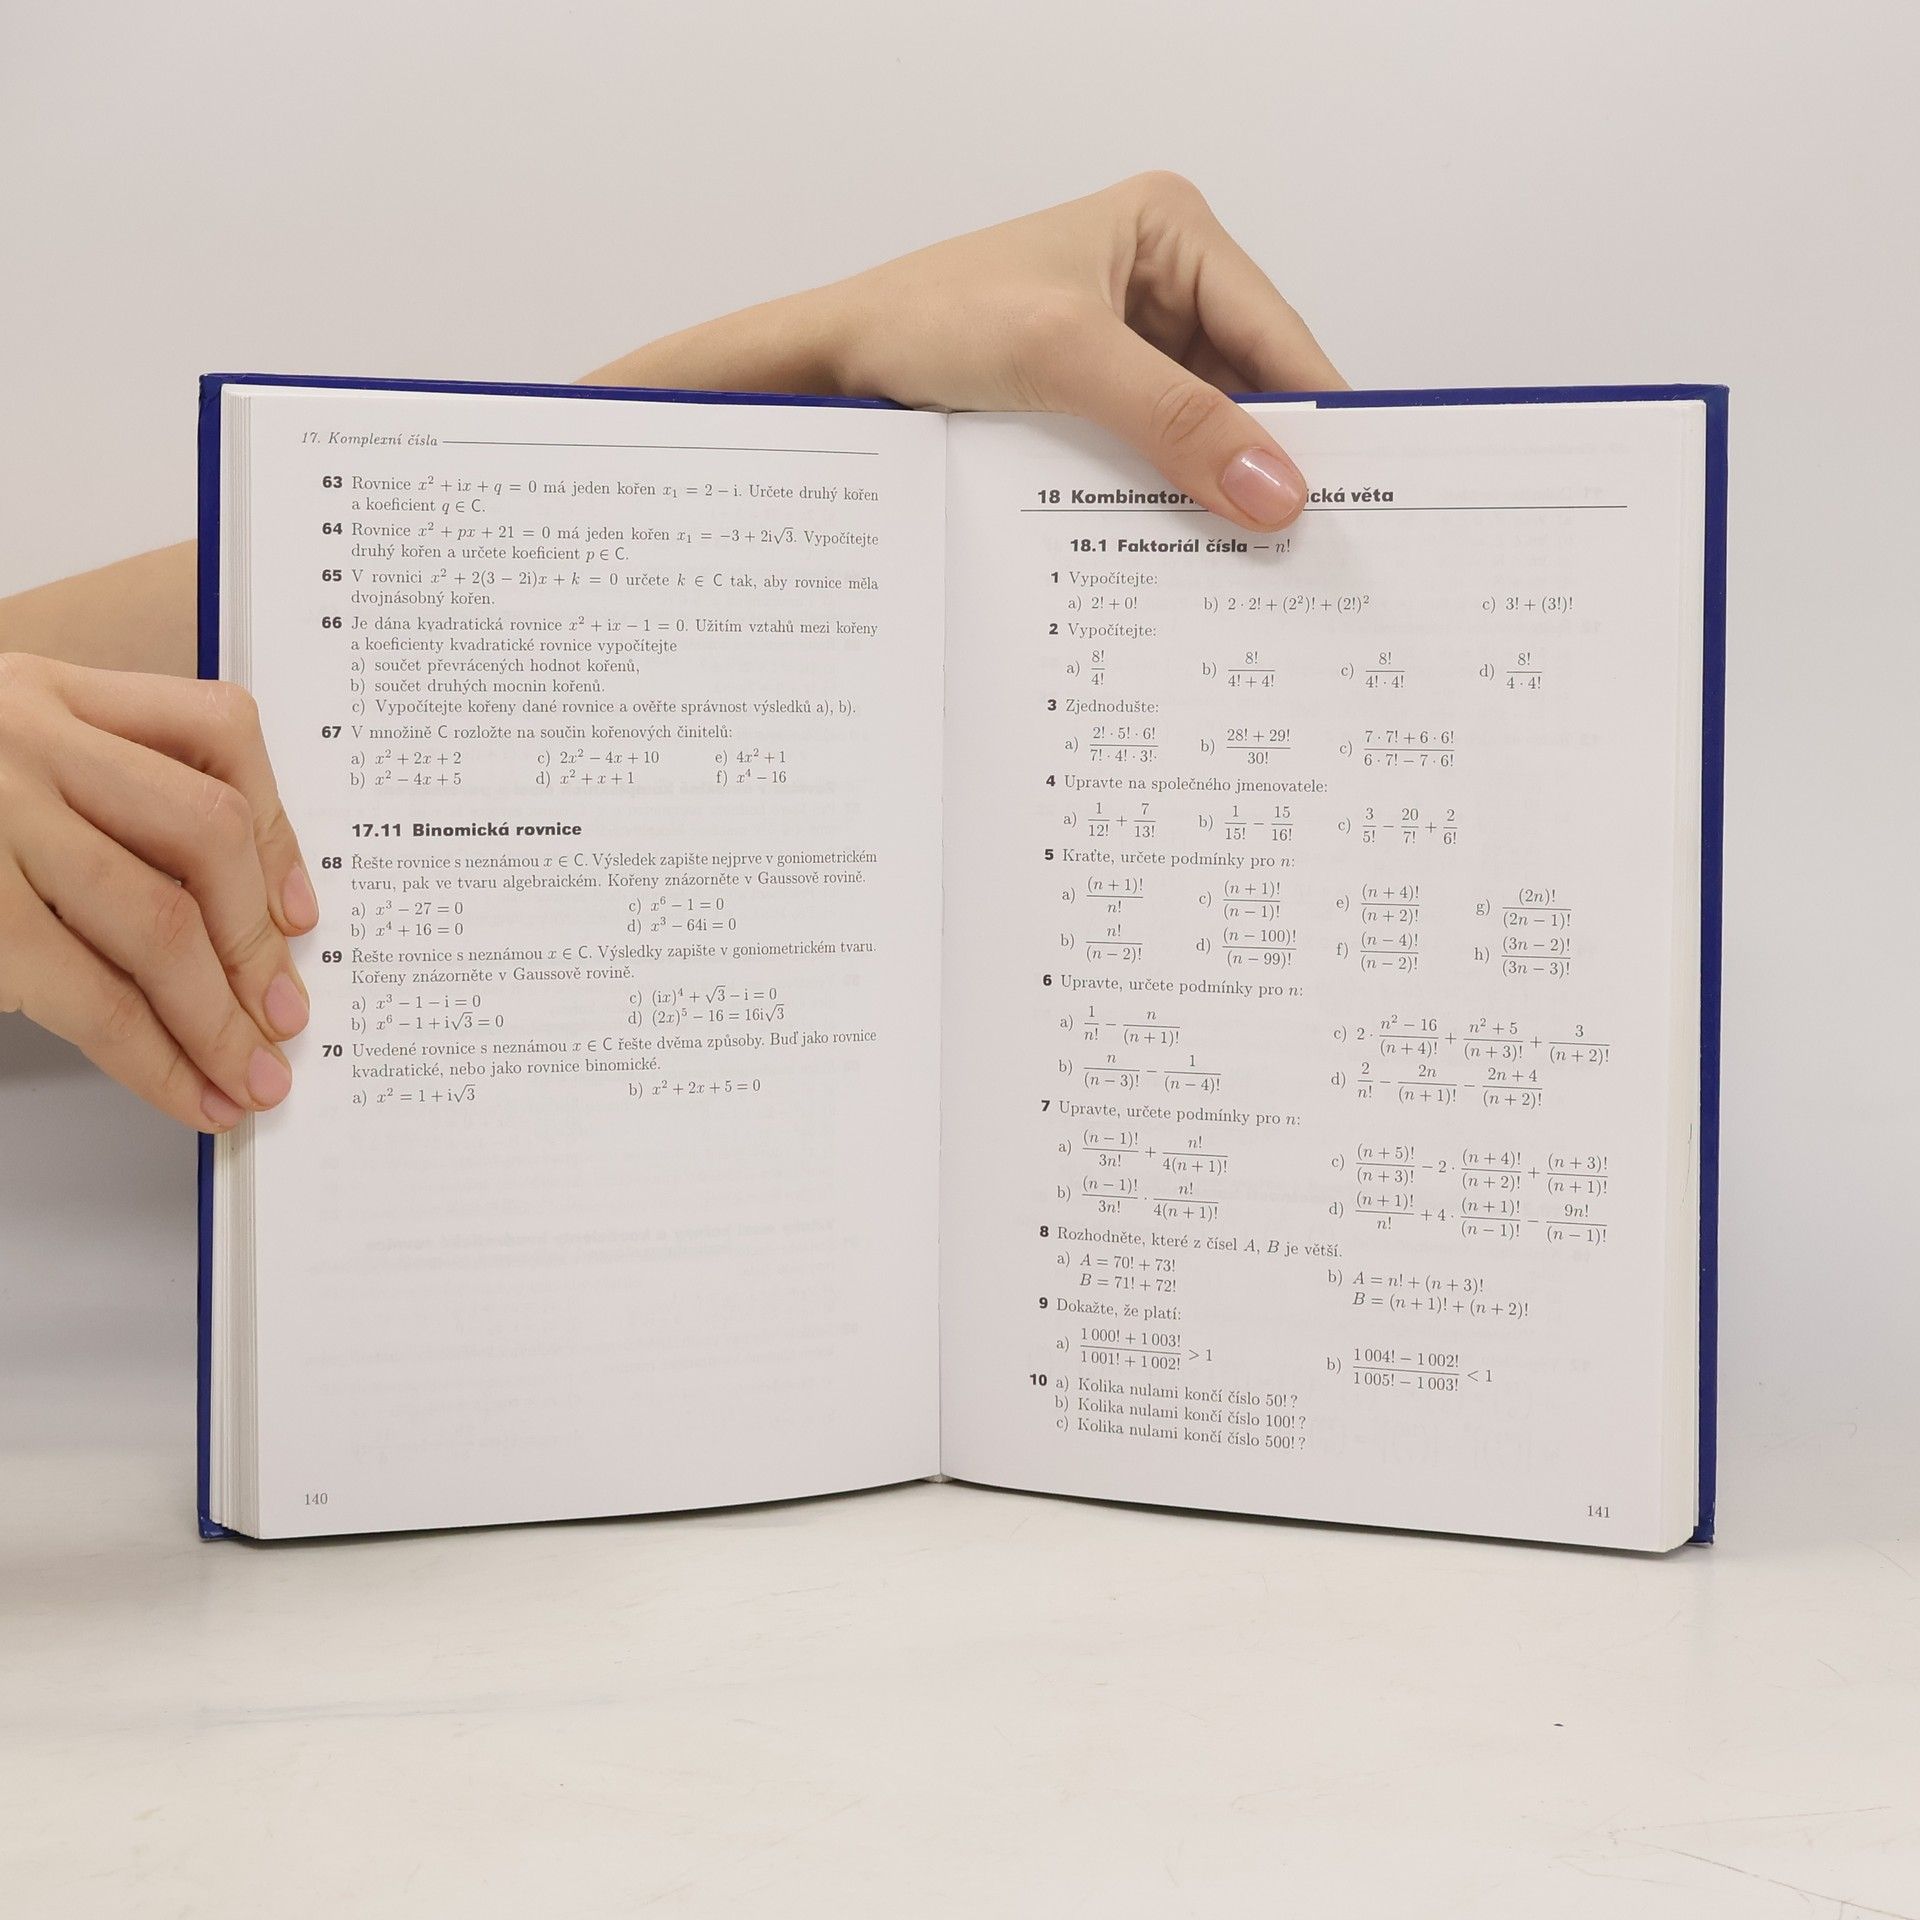 17. Komplexní čísla
63 Rovnice x² + ix + q = 0 má jeden kořen x₁ = 2 − i. Určete druhý kořen
a koeficient q ∈ C.
64 Rovnice x² + px + 21 = 0 má jeden kořen x₁ = −3 + 2i√3. Vypočítejte
druhý kořen a určete koeficient p ∈ C.
65 V rovnici x² + 2(3 − 2i)x + k = 0 určete k ∈ C tak, aby rovnice měla
dvojnásobný kořen.
66 Je dána kvadratická rovnice x² + ix − 1 = 0. Užitím vztahů mezi kořeny
a koeficienty kvadratické rovnice vypočítejte
a) součet převrácených hodnot kořenů,
b) součet druhých mocnin kořenů.
c) Vypočítejte kořeny dané rovnice a ověřte správnost výsledků a), b).
67 V množině C rozložte na součin kořenových činitelů:
a) x² + 2x + 2 c) 2x² − 4x + 10 e) 4x² + 1
b) x² − 4x + 5 d) x² + x + 1 f) x⁴ − 16
17.11 Binomická rovnice
68 Řešte rovnice s neznámou x ∈ C. Výsledek zapište nejprve v goniometrickém
tvaru, pak ve tvaru algebraickém. Kořeny znázorněte v Gaussově rovině.
a) x³ − 27 = 0 c) x⁶ − 1 = 0
b) x⁴ + 16 = 0 d) x³ − 64i = 0
69 Řešte rovnice s neznámou x ∈ C. Výsledky zapište v goniometrickém tvaru.
Kořeny znázorněte v Gaussově rovině.
a) x³ − 1 − i = 0 c) (ix)⁴ + √3 − i = 0
b) x⁶ − 1 + i√3 = 0 d) (2x)⁵ − 16 = 16i√3
70 Uvedené rovnice s neznámou x ∈ C řešte dvěma způsoby. Buď jako rovnice
kvadratické, nebo jako rovnice binomické.
a) x² = 1 + i√3 b) x² + 2x + 5 = 0
140
18 věta
18.1 Faktoriál čísla — n!
1 Vypočítejte:
a) 2! + 0! b) 2 · 2! + (2²)! + (2!)² c) 3! + (3!)!
2 Vypočítejte:
a) 8!/4! b) 8!/(4! + 4!) c) 8!/(4! · 4!) d) 8!/(4 · 4!)
3 Zjednodušte:
a) (2! · 5! · 6!)/(7! · 4! · 3!·) b) (28! + 29!)/30! c) (7 · 7! + 6 · 6!)/(6 · 7! − 7 · 6!)
4 Upravte na společného jmenovatele:
a) 1/12! + 7/13! b) 1/15! − 15/16! c) 3/5! − 20/7! + 2/6!
5 Kraťte, určete podmínky pro n:
a) (n + 1)!/n! c) (n + 1)!/(n − 1)! e) (n + 4)!/(n + 2)! g) (2n)!/(2n − 1)!
b) n!/(n − 2)! d) (n − 100)!/(n − 99)! f) (n − 4)!/(n − 2)! h) (3n − 2)!/(3n − 3)!
6 Upravte, určete podmínky pro n:
a) 1/n! − n/(n + 1)! c) 2 · (n² − 16)/(n + 4)! + (n² + 5)/(n + 3)! + 3/(n + 2)!
b) n/(n − 3)! − 1/(n − 4)! d) 2/n! − 2n/(n + 1)! − (2n + 4)/(n + 2)!
7 Upravte, určete podmínky pro n:
a) (n − 1)!/3n! + n!/4(n + 1)! c) (n + 5)!/(n + 3)! − 2 · (n + 4)!/(n + 2)! + (n + 3)!/(n + 1)!
b) (n − 1)!/3n! · n!/4(n + 1)! d) (n + 1)!/n! + 4 · (n + 1)!/(n − 1)! − 9n!/(n − 1)!
8 Rozhodněte, které z čísel A, B je větší.
a) A = 70! + 73! b) A = n! + (n + 3)!
B = 71! + 72! B = (n + 1)! + (n + 2)!
9 Dokažte, že platí:
a) (1 000! + 1 003!)/(1 001! + 1 002!) > 1 b) (1 004! − 1 002!)/(1 005! − 1 003!) < 1
10 a) Kolika nulami končí číslo 50! ?
b) Kolika nulami končí číslo 100! ?
c) Kolika nulami končí číslo 500! ?
141